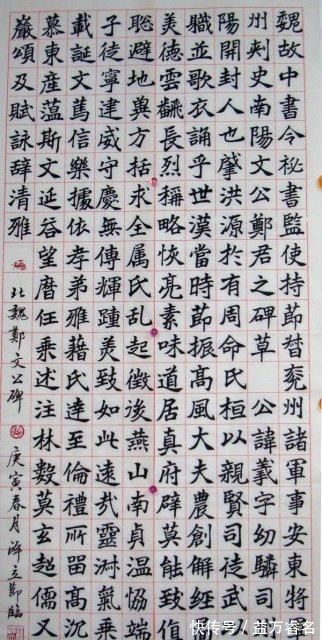 魏故中書令祕書監使持莭督兖州諸軍事安東將
州刾史南陽文公鄭君之碑草 公諱羲字幼驎司
陽開封人也肇洪源於有周命氏桓以親賢司徒武
職並歌衣誦乎世漢當時莭振髙風大夫農創解經
美德雲飜長烈稱略恢亮素味道居真府辟莫能致值
聡避地輿方括求全属氏乱起徵浚燕山南貞温恊端
子徒寧建威守慶無傳輝踵美致如此遠㢤靈淋氣乗
載誕文篤信樂據依孝弟雅藉氏逹至倫禮所畱髙沉
慕東産薀斯文延谷望曆任乗述注林數莫玄超儒又
嚴頌及賦詠辞清雅
北魏鄭文公碑
庚寅春月 立莭臨
快传号/益万睿名